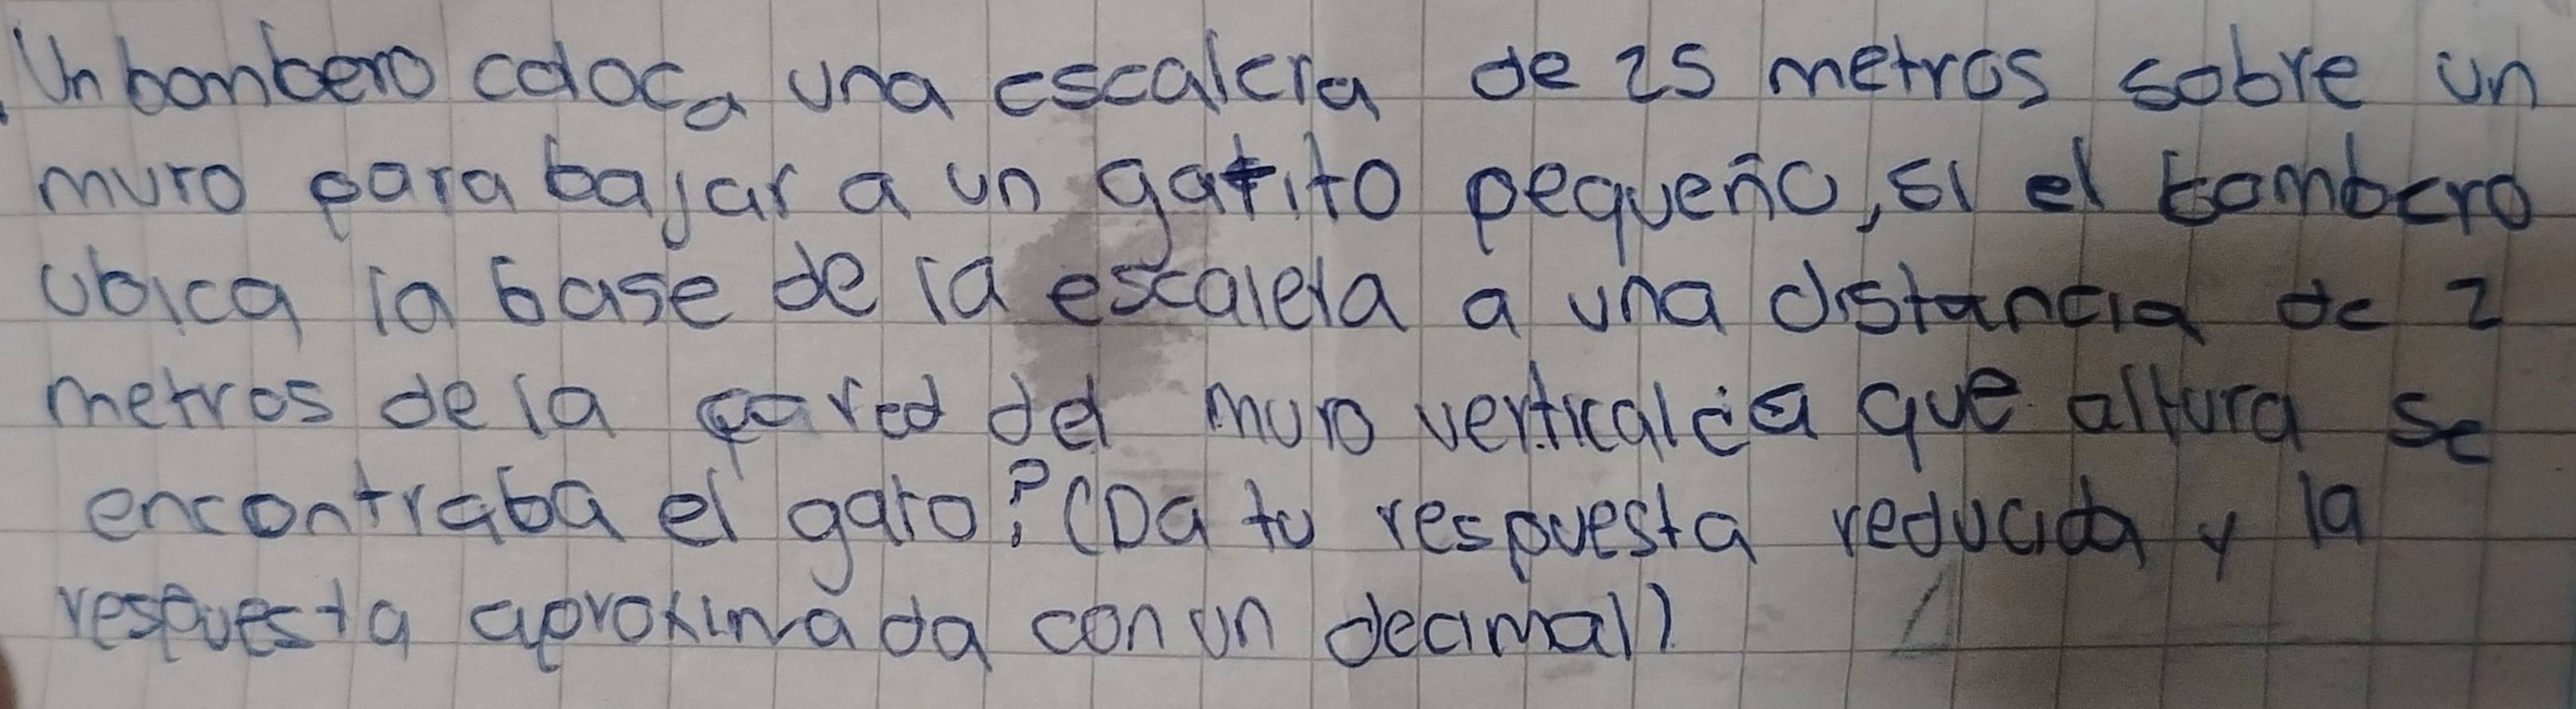 Un bombero coloca una escalera de 25 metros sobre un
muro para bajar a un gatito pequeño, si el bombero
ubica la base de la escalera a una distancia de 2
metros de la pared del muro vertical ¿a que altura se
encontraba el gato? (Da tu respuesta reducida y la
respuesta aproximada con un decimal)